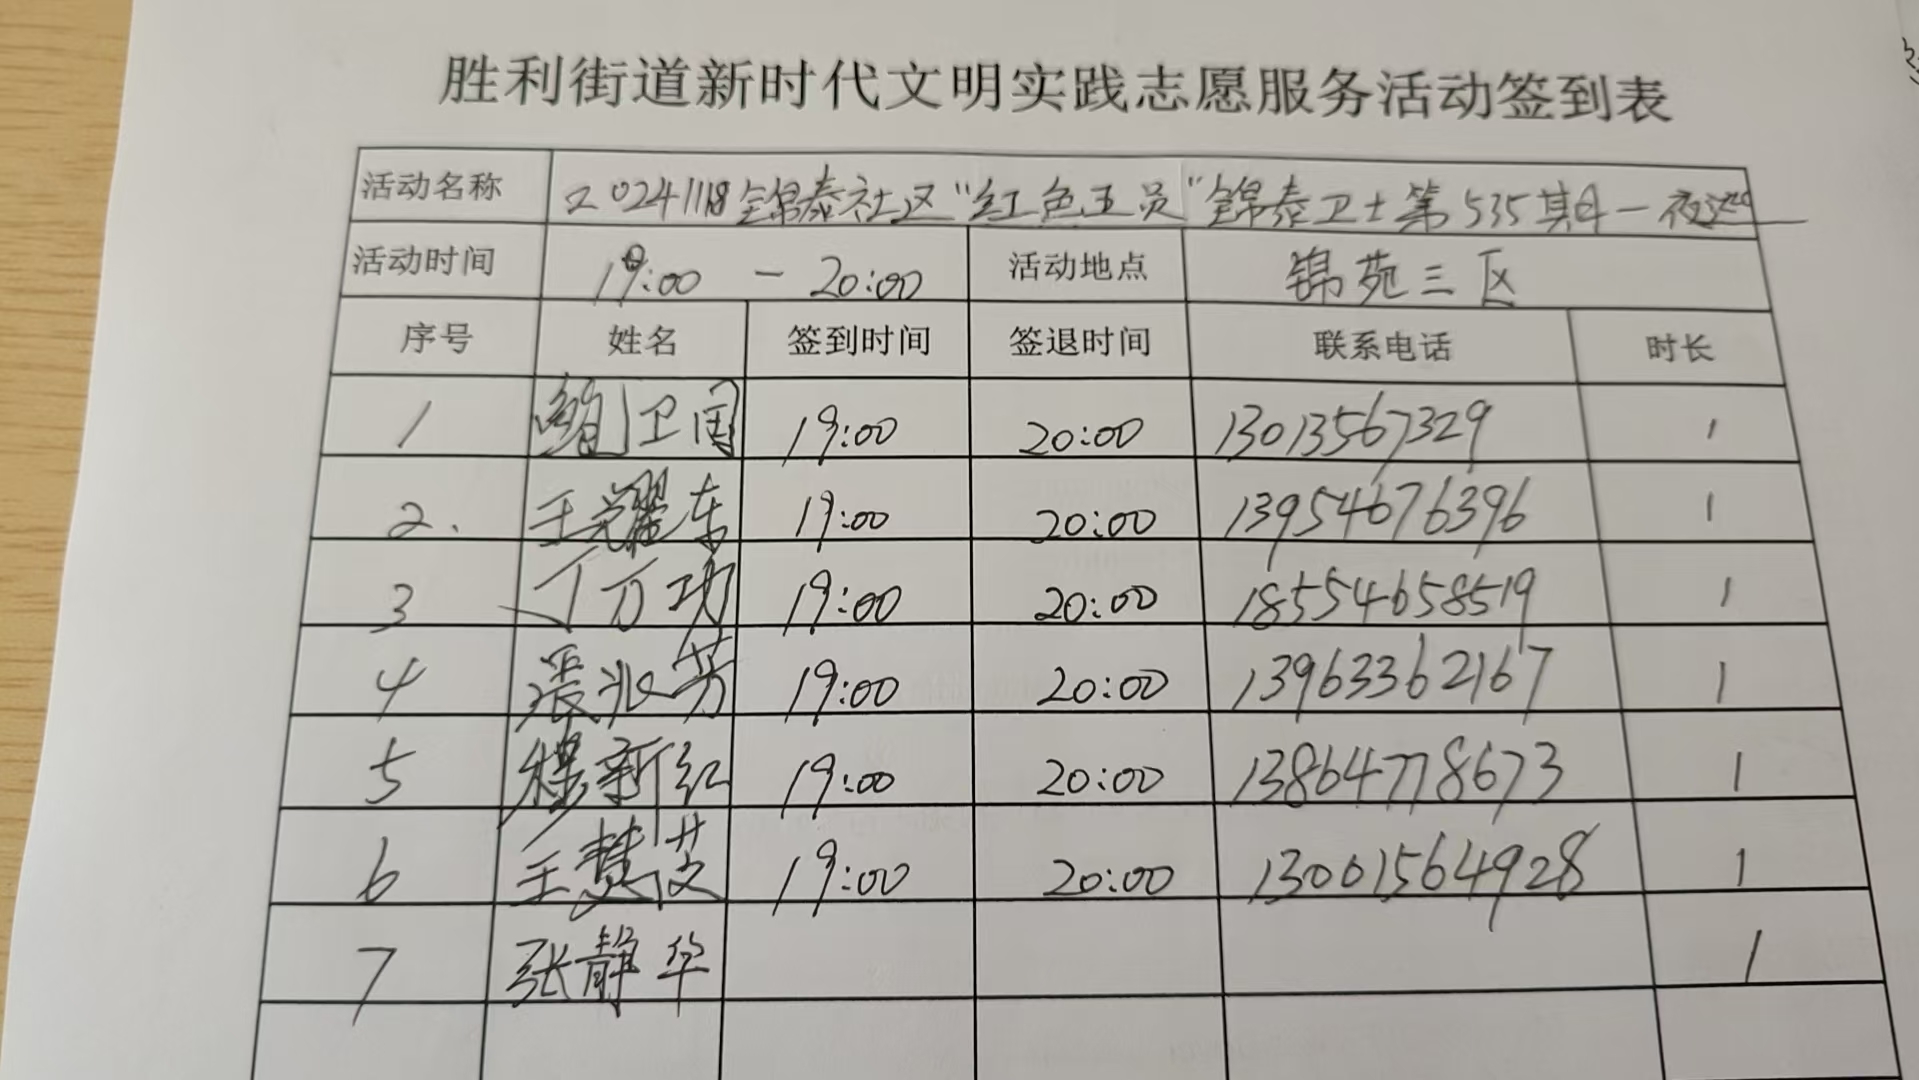 胜利街道新时代文明实践志愿服务活动签到表
活动名称 20241118锦泰社区“红色五员”锦泰卫士第535期—夜巡
活动时间 19:00 — 20:00 活动地点 锦苑三区
序号 姓名 签到时间 签退时间 联系电话 时长
1 鲍卫国 19:00 20:00 13013567329 1
2. 王耀东 19:00 20:00 13954676396 1
3 丁万功 19:00 20:00 18554658519 1
4 裴兆芳 19:00 20:00 13963362167 1
5 穆新红 19:00 20:00 13864778673 1
6 王慧英 19:00 20:00 130015564928 1
7 张静华 1